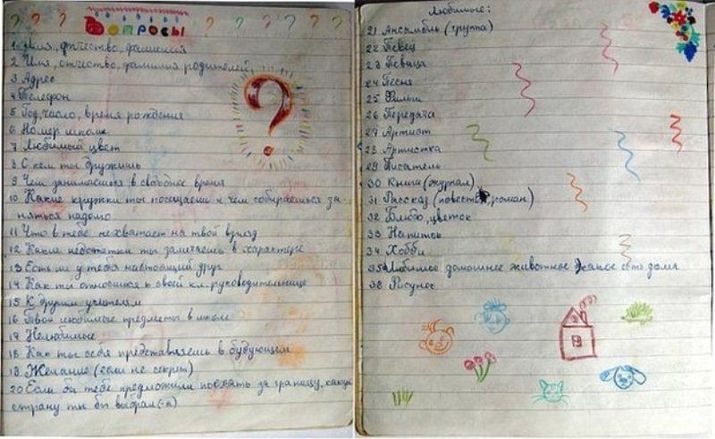 ? ? ? ? ? ? ? ?
Вопросы
1 Имя, отчество, фамилия
2 Имя, отчество, фамилия родителей
3 Адрес
4 Телефон
5 Год, число, время рождение
6 Номер школы
7 Любимый цвет
8 С кем ты дружишь
9 Чем занимаешься в свободнее время
10 Какие кружки ты посещаеш и чем собираешься за
няться надолго
11 Что в тебе нехватает на твой взгляд
12 Какие недостатки ты замечаешь в характере
13 Есть ли у тебя настоящий друг
14 Как ты относишься к своей кл. руководительнице
15 К другим учителям
16 Твои любимые предметы в школе
17 Нелюбимые
18 Как ты себя представляешь в будующем
19 Желание (если не секрет)
20 Если бы тебе предложили поехать за границу, какую
страну ты бы выбрал(-а)
?
Любимые:
21 Ансамбль (группа)
22 Певец
23 Певица
24 Песня
25 Фильм
26 Передача
27 Артист
28 Артистка
29 Писатель
30 Книга (журнал)
31 Рассказ (повесть, роман)
32 Блюдо, цветок
33 Напиток
34 Хобби
35 Любимое домашнее животное какое есть дома
36 Рисунок